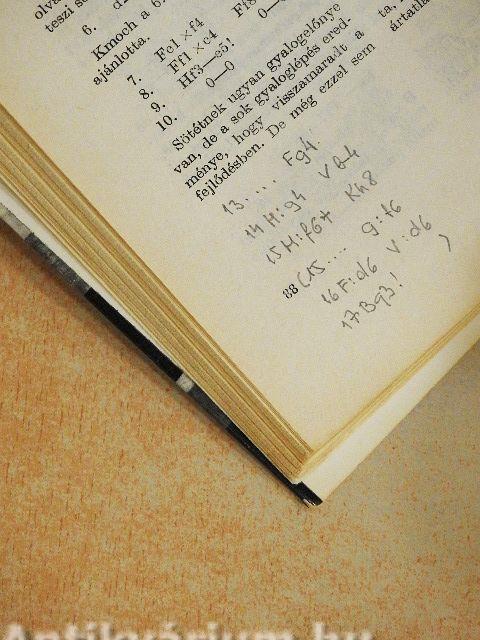 teszi
6.
Kmoch a 6.
ajánlotta.
7. Fc1×f4
8. Ff1×c4
9. Hf3—e5!
10. 0—0
0—0
Sötétnek ugyan gyalogelőnye
van, de a sok gyaloglépés ered-
ménye, hogy visszamaradt a
fejlődésben. De még ezzel sem
ta,
ártatla
13. .... Fg4!
14 H:g4 V B4
15 H:f6+ Kh8
(15.... g:f6
16 F:d6 V:d6
17 Bg3!
88
Antikvárium.hu